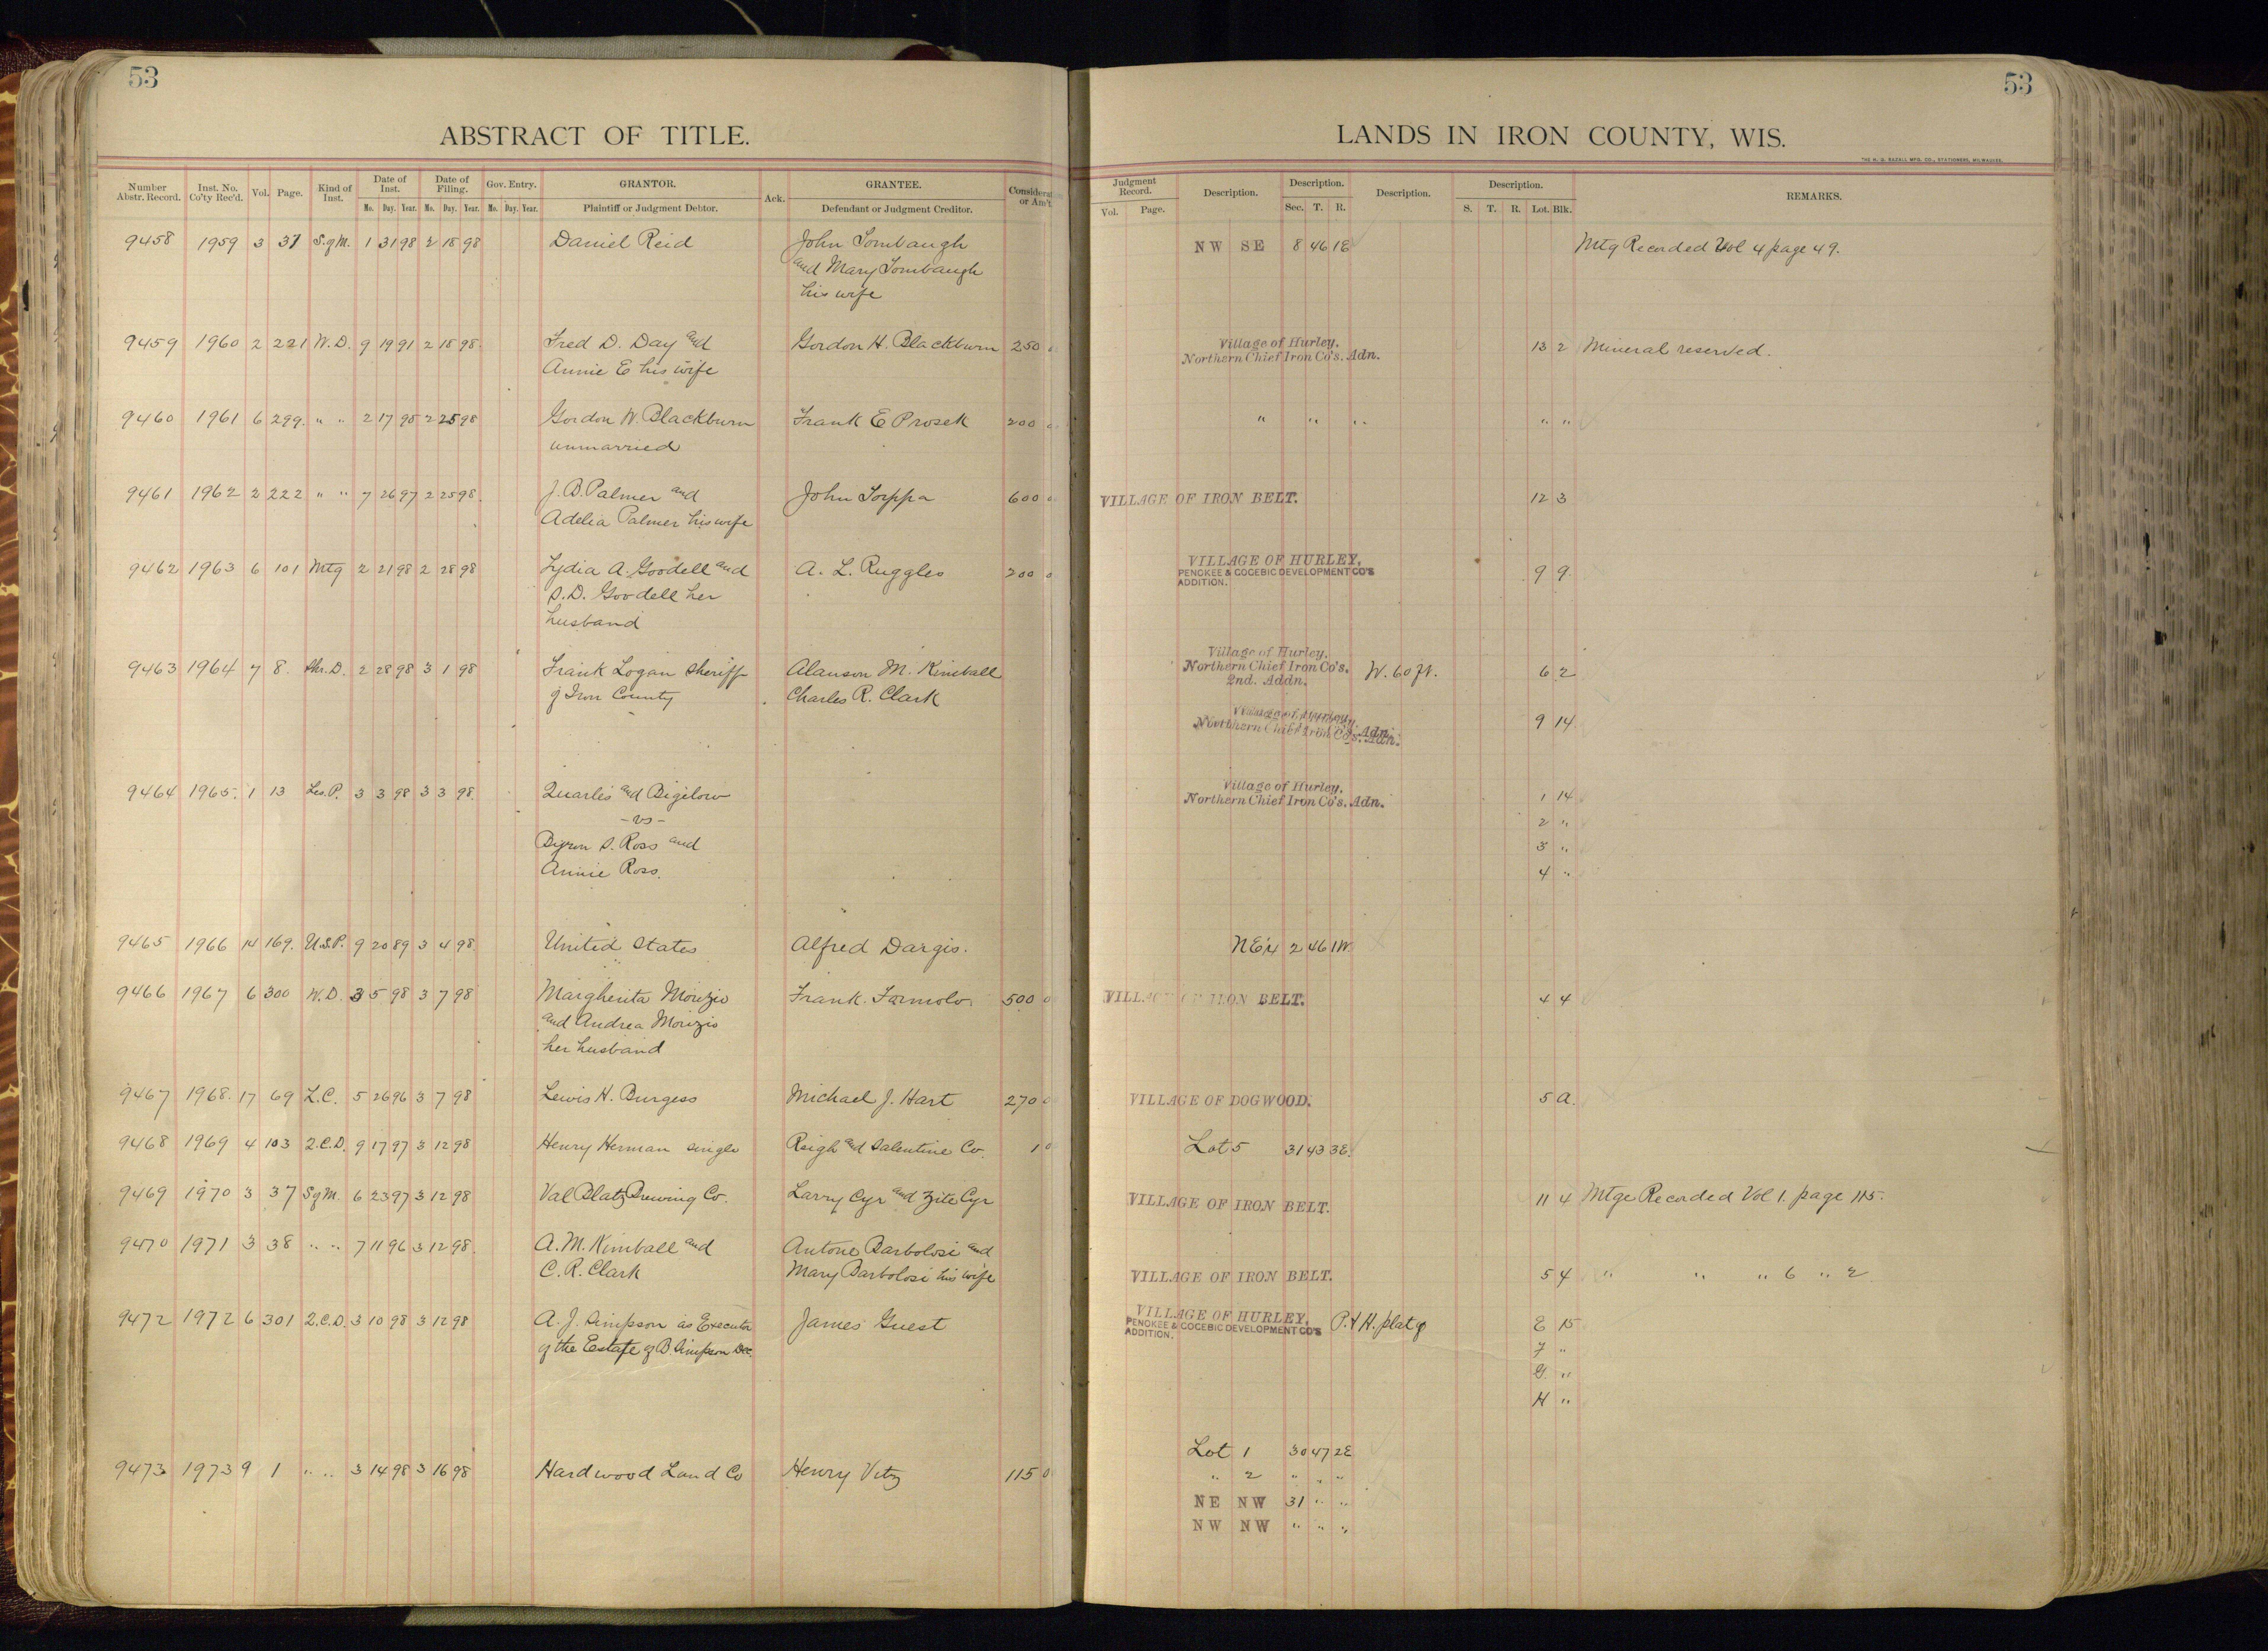 53
ABSTRACT OF TITLE.
Number Abstr. Record. Inst. No. Co'ty Rec'd. Vol. Page. Kind of Inst. Date of Inst. Date of Filing. Gov. Entry. GRANTOR. Ack. GRANTEE. Considerat or Am't
Mo. Day. Year. Mo. Day. Year. Mo. Day. Year. Plaintiff or Judgment Debtor. Defendant or Judgment Creditor.
9458 1959 3 37 S.gM. 1 31 98 2 18 98 Daniel Reid John Tombaugh
and Mary Tombaugh
his wife
9459 1960 2 221 W.D. 9 19 91 2 18 98 Fred D. Day and Gordon H. Blackburn 250
Annie E his wife
9460 1961 6 299. " " 2 17 98 2 25 98 Gordon W. Blackburn Frank E Prosek 200
unmarried
9461 1962 2 222 " " 7 26 97 2 25 98. J. B. Palmer and John Torppa 600
Adelia Palmer his wife
9462 1963 6 101 Mtg 2 21 98 2 28 98 Lydia A. Goodell and A. L. Ruggles 200
S. D. Goodell her
husband
9463 1964 7 8. Shr. D. 2 28 98 3 1 98 Frank Logan Sheriff Alanson M. Kimball
of Iron County Charles R. Clark
9464 1965. 1 13 Les. P. 3 3 98 3 3 98. Quarles and Bigelow
- vs -
Byron S. Ross and
Annie Ross.
9465 1966 14 169. U.S.P. 9 20 89 3 4 98. United States Alfred Dargis.
9466 1967 6 300 W.D. 3 5 98 3 7 98 Margherita Morizio Frank Formolo 500
and Andrea Morizio
her husband
9467 1968. 17 69 L.C. 5 26 96 3 7 98 Lewis H. Burgess Michael J. Hart 270
9468 1969 4 103 2.C.D. 9 17 97 3 12 98 Henry Herman single Reigh and Salentine Co. 1
9469 1970 3 37 SgM. 6 23 97 3 12 98 Val Blatz Brewing Co. Larry Cyr and Zite Cyr
9470 1971 3 38 " " 7 11 96 3 12 98. A. M. Kimball and Antone Barbolosi and
C. R. Clark Mary Barbolosi his wife
9472 1972 6 301 2.C.D. 3 10 98 3 12 98 A. J. Simpson as Executor James Guest
of the Estate of B. Simpson Dec.
9473 1973 9 1 " " 3 14 98 3 16 98 Hardwood Land Co Henry Vitz 115
53
LANDS IN IRON COUNTY, WIS.
THE H. G. RAZALL MFG. CO., STATIONERS, MILWAUKEE.
Judgment Record. Description. Description. Description. Description. REMARKS.
Vol. Page. Sec. T. R. S. T. R. Lot. Blk.
NW SE 8 46 1E Mtg Recorded Vol 4 page 49.
Village of Hurley.
Northern Chief Iron Co's. Adn. 13 2 Mineral reserved.
" " " " "
VILLAGE OF IRON BELT. 12 3
VILLAGE OF HURLEY,
PENOKEE & GOGEBIC DEVELOPMENT CO'S
ADDITION. 9 9.
Village of Hurley.
Northern Chief Iron Co's. W. 60 ft. 6 2
2nd. Addn.
Village of Hurley.
Northern Chief Iron Co's. Adn. 9 14
Village of Hurley.
Northern Chief Iron Co's. Adn. 1 14
2 "
3 "
4 "
NE¼ 2 46 1W.
VILLAGE OF IRON BELT. 4 4
VILLAGE OF DOGWOOD. 5 A.
Lot 5 31 43 3E.
VILLAGE OF IRON BELT. 11 4 Mtge Recorded Vol 1. page 115.
VILLAGE OF IRON BELT. 5 4 " " " 6 " 2
VILLAGE OF HURLEY,
PENOKEE & GOGEBIC DEVELOPMENT CO'S P. & H. plat of E 15
ADDITION.
F "
G. "
H "
Lot 1 30 47 2E
" 2 " " "
NE NW 31 " "
NW NW " " "